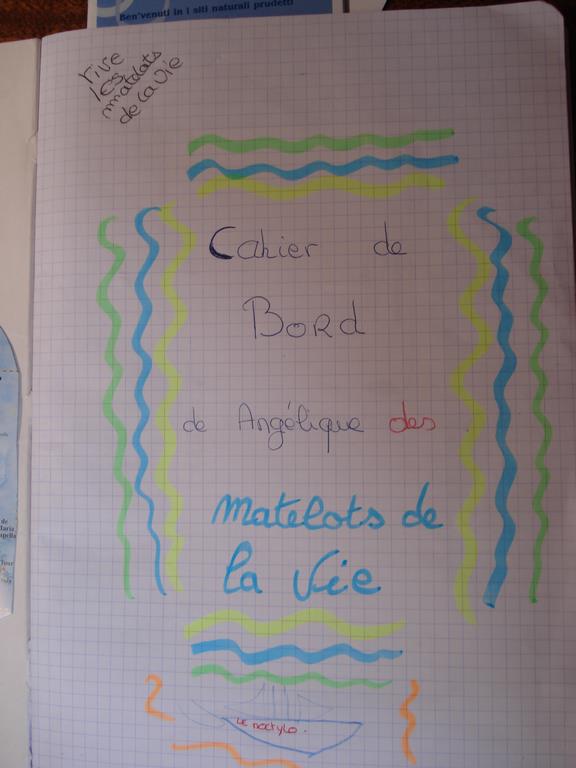 Ben'venuti in i siti naturali prudetti
vive
les
matelots
de la vie
Cahier de
Bord
de Angélique des
matelots de
la Vie
Le nactylo.
de
Tour